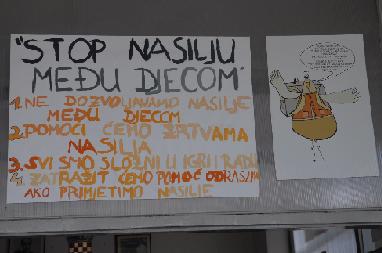 "STOP NASILJU
MEĐU DJECOM"
1. NE DOZVOLJAVAMO NASILJE
MEĐU DJECOM
2. POMOĆI ĆEMO ŽRTVAMA
NASILJA
3. SVI SMO SLOŽNI U IGRI I RADU
ZATRAŽIT ĆEMO POMOĆ ODRASLIH
AKO PRIMJETIMO NASILJE